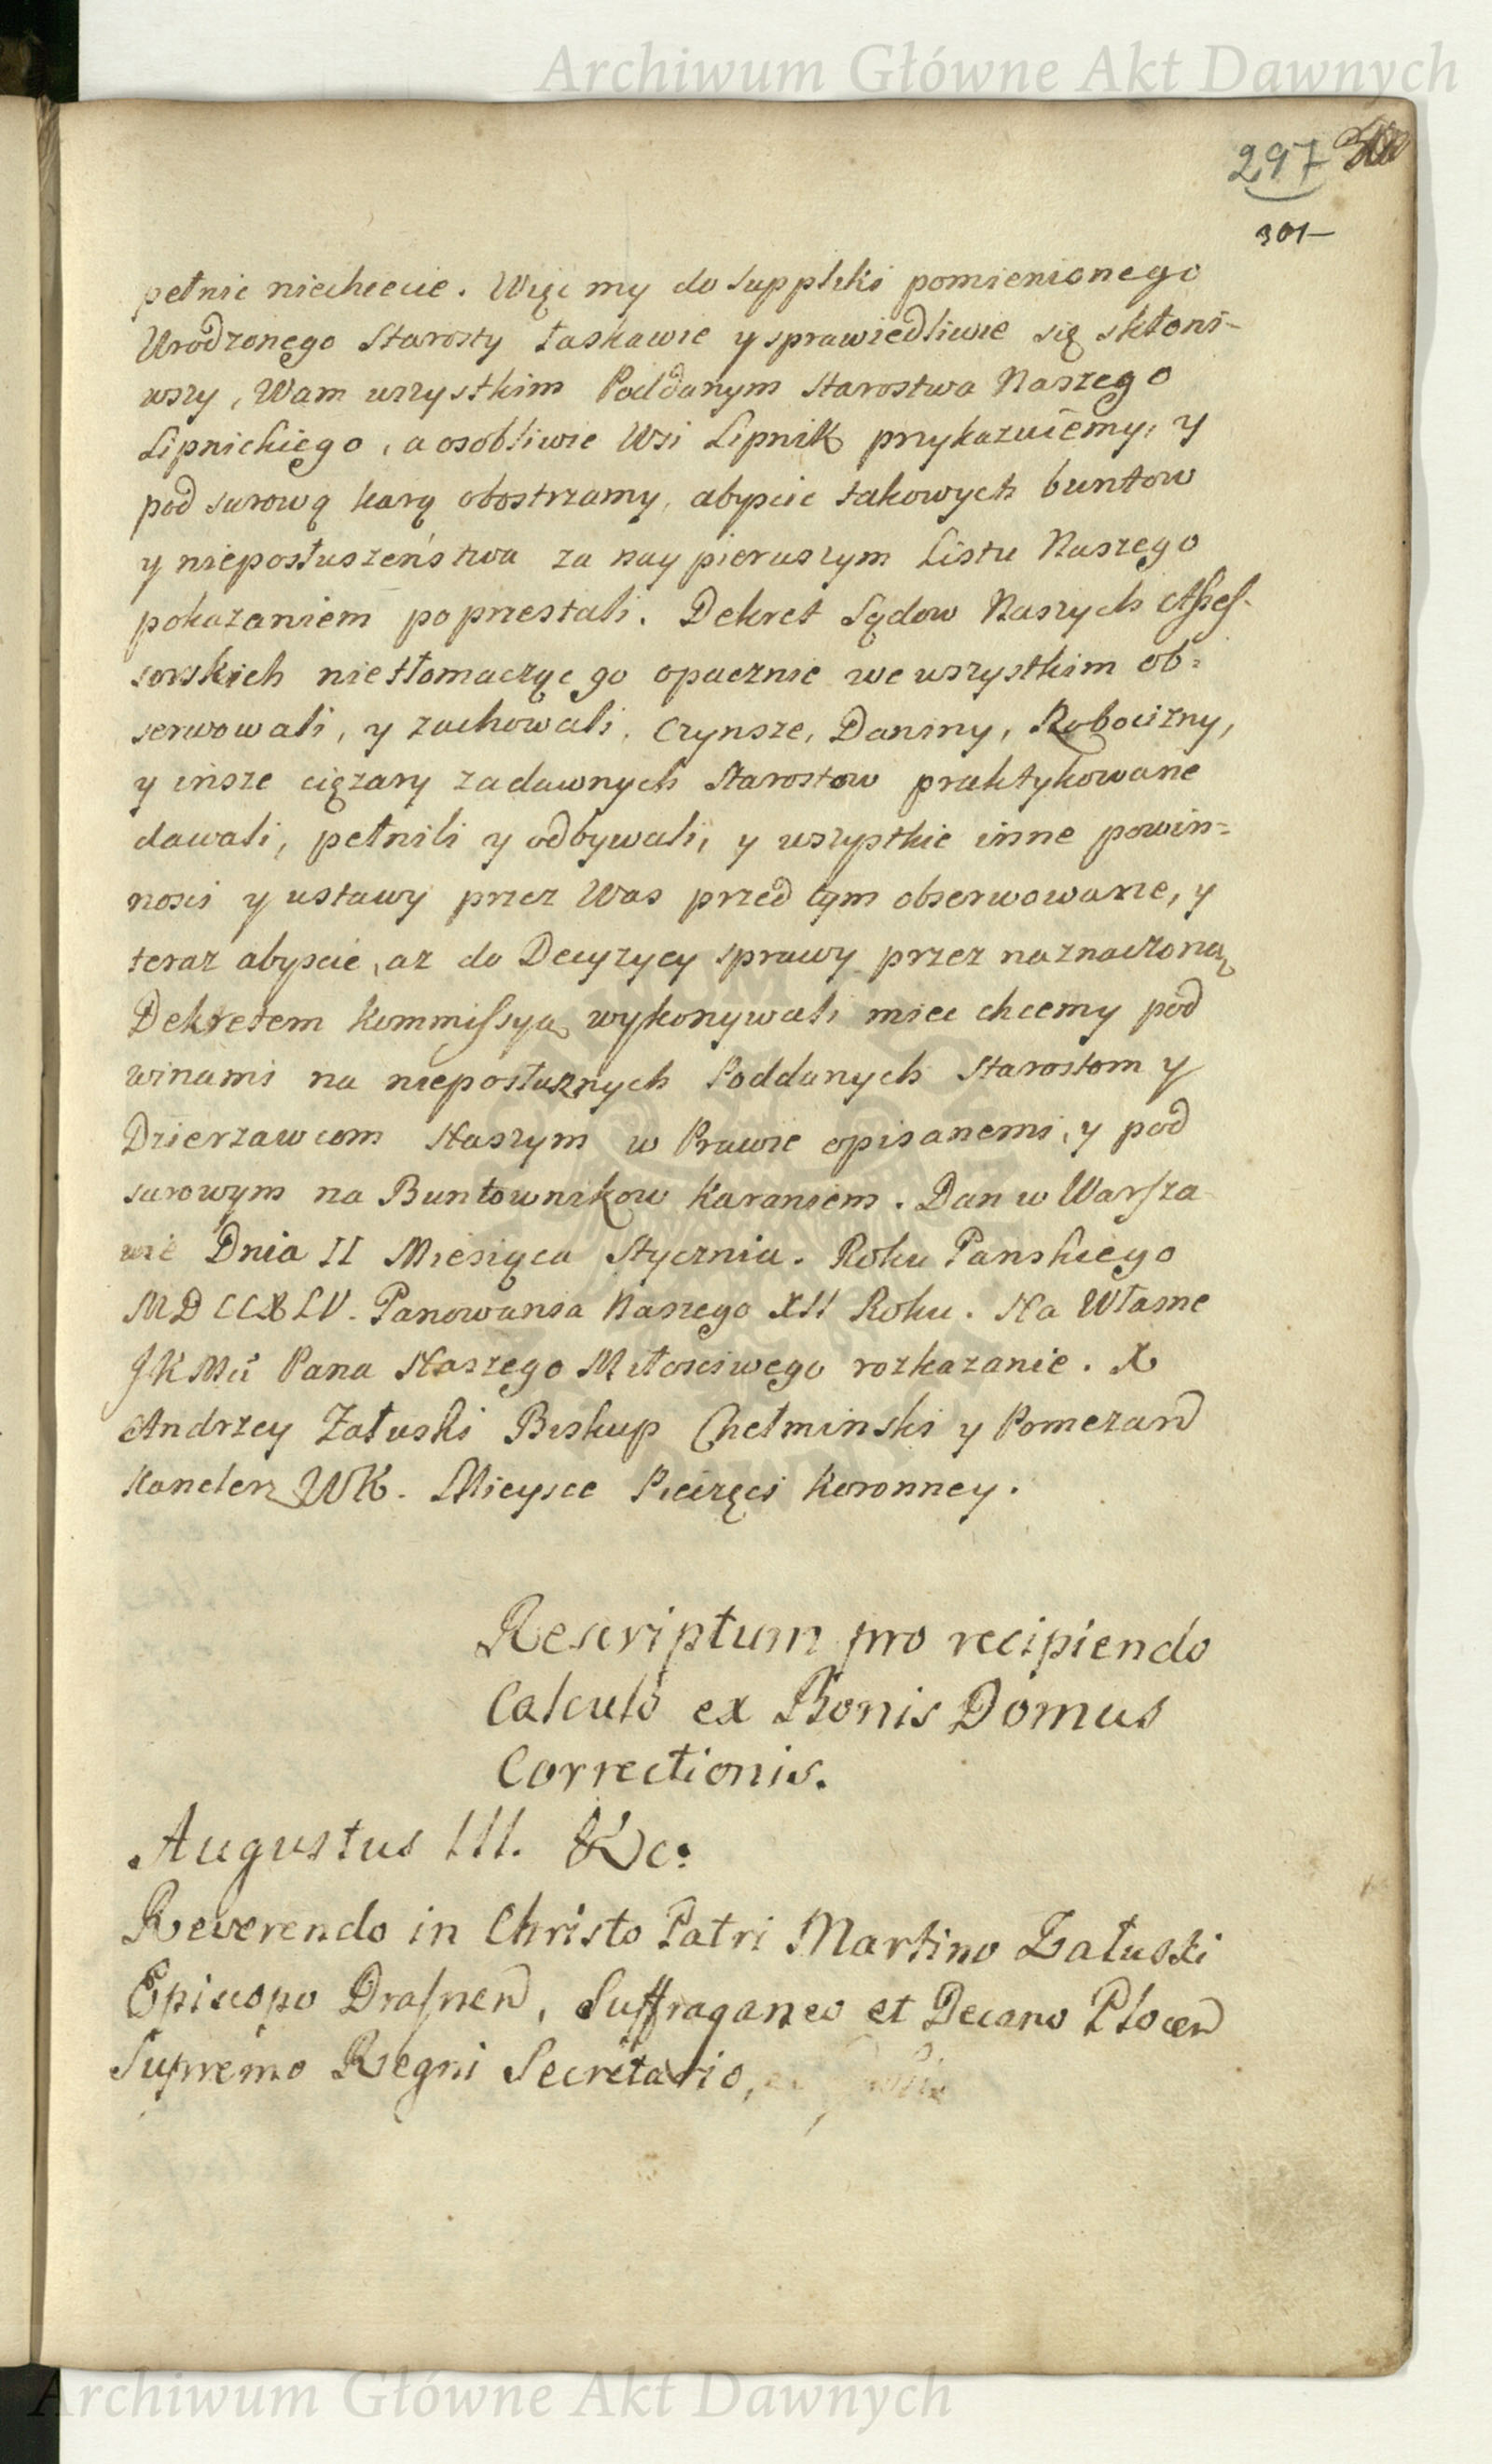 Archiwum Główne Akt Dawnych
297
301
pełnic niechcecie. Więc my do suppliki pomienionego
Urodzonego Starosty łaskawie y sprawiedliwie się skłoni-
wszy, Wam wszystkim Poddanym Starostwa Naszego
Lipnickiego, a osobliwie Wsi Lipnik przykazuiemy, y
pod surową karą obostrzamy, abyscie takowych buntow
y nieposłuszeństwa za nay pierwszym Listu Naszego
pokazaniem poprzestali. Dekret Sądow Naszych Assess-
sorskich nietłomacząc go opacznie we wszystkim ob-
serwowali, y zachowali. Czynsze, Daniny, Robocizny,
y insze cięzary zadawnych Starostow praktykowane
dawali, pełnili y odbywali, y wszystkie inne powin-
nosci y ustawy przez Was przed tym obserwowane, y
teraz abyscie, az do Decyzycy sprawy przez naznaczoną
Dekretem Kommissyą wykonywali miec chcemy pod
winami na nieposłusznych Poddanych Starostom y
Dzierzawcom Naszym w Prawie opisanemi, y pod
surowym na Buntownikow Karaniem. Dan w Warsza
wie Dnia II Miesiąca Stycznia. Roku Panskiego
MDCCXLV. Panowania Naszego XII Roku. Na Własne
JKMci Pana Naszego Miłosciwego rozkazanie. X
Andrzey Załuski Biskup Chełminski y Pomezan
Kanclerz WK. Mieysce Pieczęci Koronney.
Rescriptum pro recipiendo
Calculo ex Bonis Domus
Correctionis.
Augustus III. &c:
Reverendo in Christo Patri Martino Załuski
Episcopo Drasnen, Suffraganeo et Decano Plocen
Supremo Regni Secretario,
Archiwum Główne Akt Dawnych